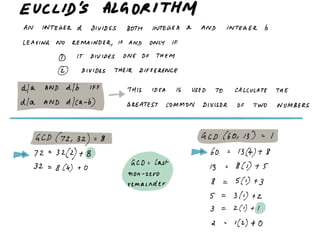 EUCLID'S ALGORITHM
AN INTEGER d DIVIDES BOTH INTEGER a AND INTEGER b
LEAVING NO REMAINDER, IF AND ONLY IF
① IT DIVIDES ONE OF THEM
② DIVIDES THEIR DIFFERENCE
d|a AND d|b IFF
d|a AND d|(a-b)
THIS IDEA IS USED TO CALCULATE THE
GREATEST COMMON DIVISOR OF TWO NUMBERS
GCD (72, 32) = 8
72 = 32(2) + 8
32 = 8(4) + 0
GCD = Last
non-zero
remainder
GCD (60, 13) = 1
60 = 13(4) + 8
13 = 8(1) + 5
8 = 5(1) + 3
5 = 3(1) + 2
3 = 2(1) + 1
2 = 1(2) + 0